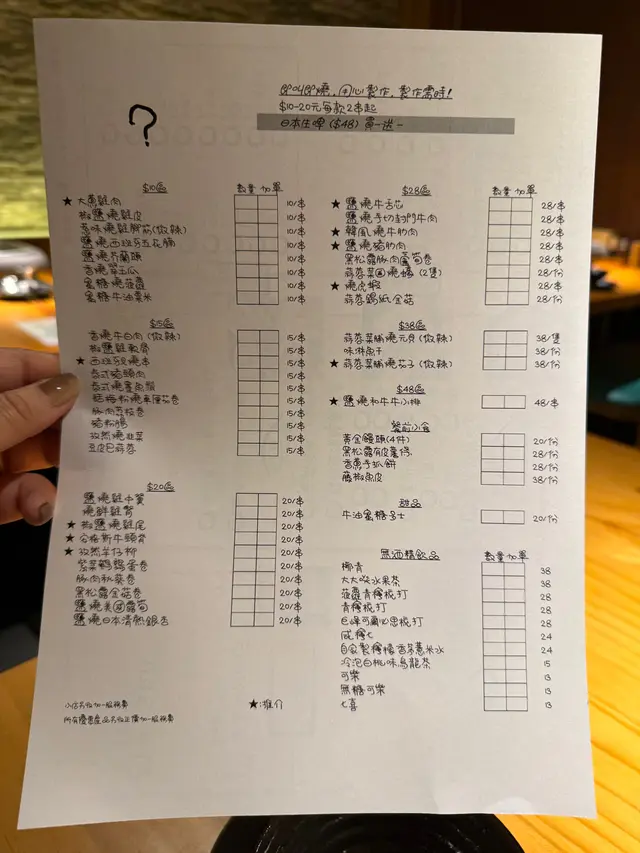 即叫即燒，用心製作，製作需時！
$10-20元每款2串起
日本生啤 ($48) 買一送一
?
$10區 數量 加單
★ 大蔥雞肉 10/串
椒鹽燒雞皮 10/串
惹味燒雞腳筋(微辣) 10/串
鹽燒西班牙五花腩 10/串
鹽燒芥蘭頭 10/串
香燒翠玉瓜 10/串
蜜糖燒菠蘿 10/串
蜜糖牛油粟米 10/串
$15區
香燒牛白肉(微辣) 15/串
椒鹽雞軟骨 15/串
★ 西班牙燒本 15/串
泰式豬頸肉 15/串
泰式燒墨魚鬚 15/串
15/串
豚肉荳枝卷 15/串
豬粉腸 15/串
孜然燒韭菜 15/串
豆皮巴蒜蓉 15/串
$20區
鹽燒雞中翼 20/串
燒鮮雞腎 20/串
★ 椒鹽燒雞尾 20/串
★ 安格斯牛頸脊 20/串
★ 孜然羊仔柳 20/串
紫菜鵪鶉蛋卷 20/串
豚肉秋葵卷 20/串
黑松露金菇卷 20/串
鹽燒美國露筍 20/串
鹽燒日本清熱銀杏 20/串
小店另收加一服務費
所有優惠產品另收正價加一服務費
★:推介
$28區 數量 加單
★ 鹽燒牛舌芯 28/串
鹽燒手切封門牛肉 28/串
★ 韓風燒牛肋肉 28/串
★ 鹽燒豬肋肉 28/串
黑松露豚肉蘆筍卷 28/串
蒜蓉菜圃燒蠔 (2隻) 28/份
★ 燒虎蝦 28/串
蒜蓉錫紙金菇 28/份
$38區
蒜蓉菜脯燒元貝(微辣) 38/隻
味淋魚干 38/份
★ 蒜蓉菜脯燒茄子(微辣) 38/份
$48區
★ 鹽燒和牛牛小排 48/串
餐前小食
黃金饅頭(4件) 20/份
黑松露有皮薯條 28/份
香蔥手抓餅 28/份
藤椒魚皮 38/份
甜品
牛油蜜糖多士 20/份
無酒精飲品 數量 加單
椰青 38
大大啖水果茶 38
菠蘿青檸梳打 28
青檸梳打 28
巨峰可爾必思梳打 28
咸檸七 24
自家製檸檬香茅薏米水 24
冷泡白桃味烏龍茶 15
可樂 13
無糖可樂 13
七喜 13